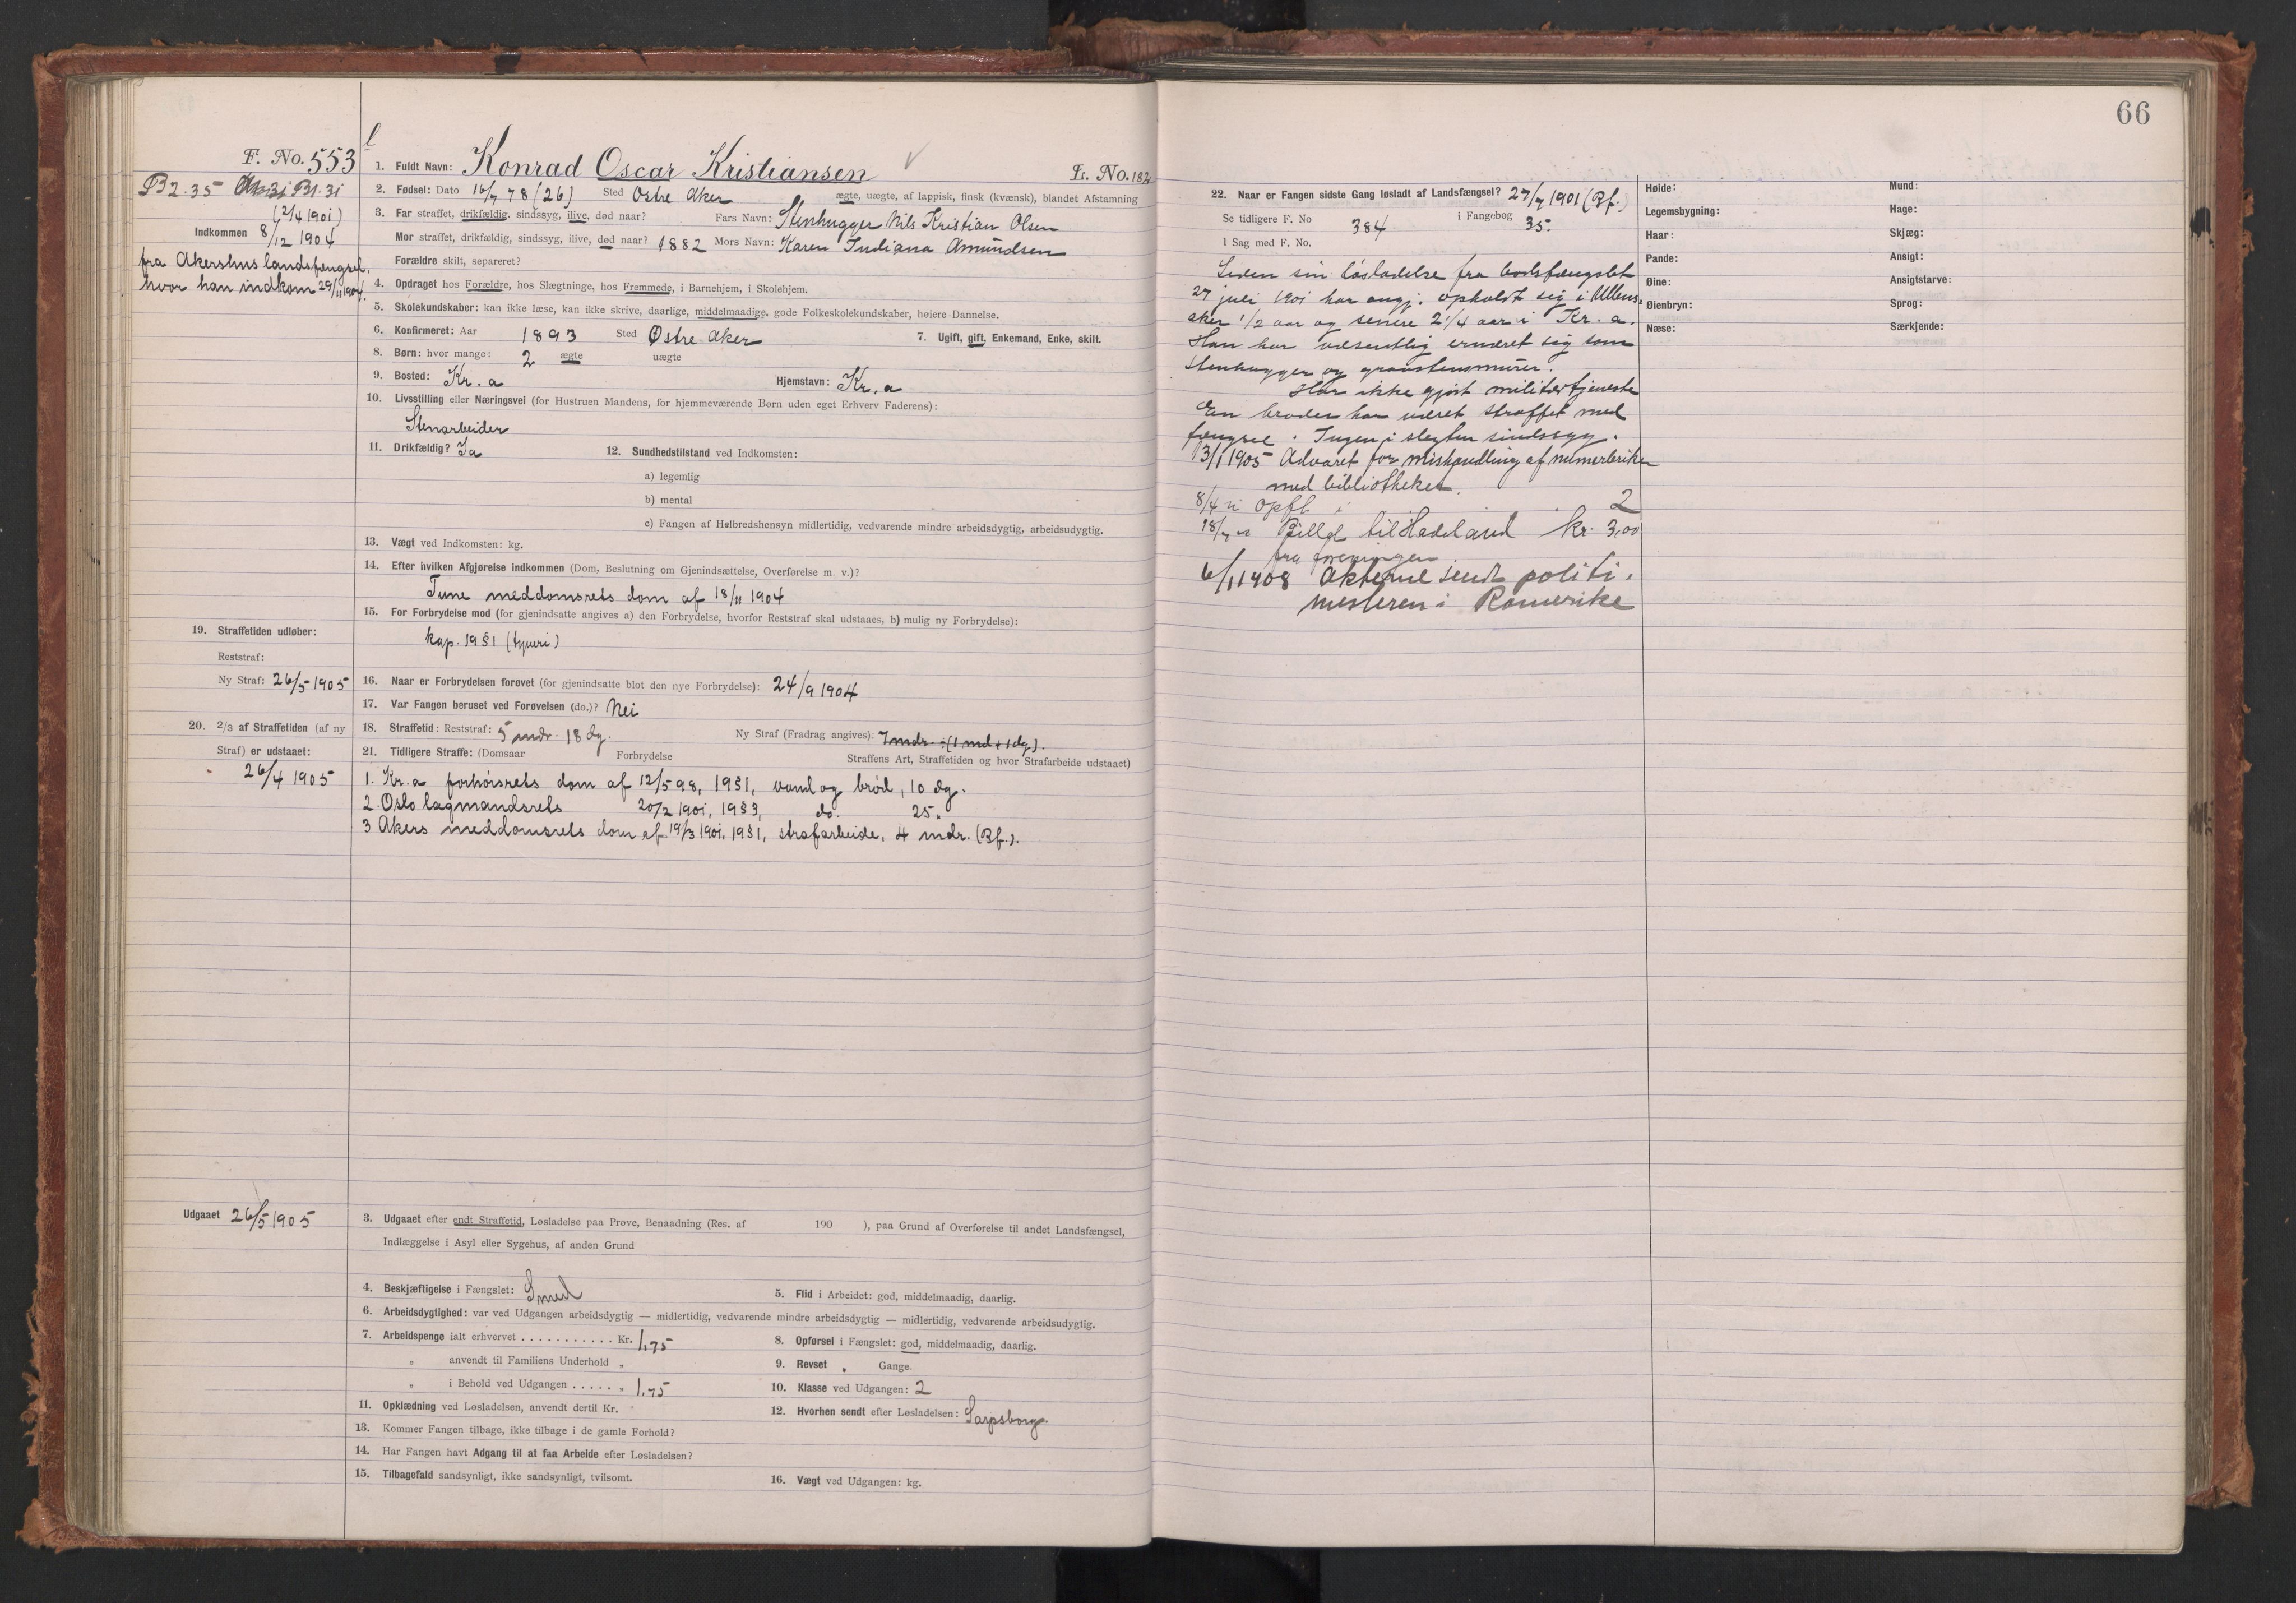 66
F. No. 553
B2.35 B1.31
(2/4 1901)
Indkommen 8/12 1904
fra Akershus landsfængsel,
hvor han indkom 29/11 1904.
1. Fuldt Navn: Konrad Oscar Kristiansen
Fr. No. 182
2. Fødsel: Dato 16/7 78 (26) Sted Østre Aker ægte, uægte, af lappisk, finsk (kvænsk), blandet Afstamning
3. Far straffet, drikfældig, sindssyg, ilive, død naar? Fars Navn: Stenhugger Nils Kristian Olsen
Mor straffet, drikfældig, sindssyg, ilive, død naar? 1882 Mors Navn: Karen Indiana Amundsen
Forældre skilt, separeret?
4. Opdraget hos Forældre, hos Slægtninge, hos Fremmede, i Barnehjem, i Skolehjem.
5. Skolekundskaber: kan ikke læse, kan ikke skrive, daarlige, middelmaadige, gode Folkeskolekundskaber, høiere Dannelse.
6. Konfirmeret: Aar 1893 Sted Østre Aker 7. Ugift, gift, Enkemand, Enke, skilt.
8. Børn: hvor mange: 2 ægte uægte
9. Bosted: Kr.a Hjemstavn: Kr.a
10. Livsstilling eller Næringsvei (for Hustruen Mandens, for hjemmeværende Børn uden eget Erhverv Faderens):
Stenarbeider
11. Drikfældig? Ja 12. Sundhedstilstand ved Indkomsten:
a) legemlig
b) mental
c) Fangen af Helbredshensyn midlertidig, vedvarende mindre arbeidsdygtig, arbeidsudygtig.
13. Vægt ved Indkomsten: kg.
14. Efter hvilken Afgjørelse indkommen (Dom, Beslutning om Gjenindsættelse, Overførelse m. v.)?
Tune meddomsrets dom af 18/11 1904
15. For Forbrydelse mod (for gjenindsatte angives a) den Forbrydelse, hvorfor Reststraf skal udstaaes, b) mulig ny Forbrydelse):
kap. 19 § 1 (tyveri)
19. Straffetiden udløber:
Reststraf:
Ny Straf: 26/5 1905
16. Naar er Forbrydelsen forøvet (for gjenindsatte blot den nye Forbrydelse): 24/9 1904
17. Var Fangen beruset ved Forøvelsen (do.)? Nei
20. 2/3 af Straffetiden (af ny
Straf) er udstaaet:
26/4 1905
18. Straffetid: Reststraf: 5 mdr. 18 dg. Ny Straf (Fradrag angives): 7 mdr. ÷ (1 md + 1 dg).
21. Tidligere Straffe: (Domsaar Forbrydelse Straffens Art, Straffetiden og hvor Strafarbeide udstaaet)
1. Kr.a forhørsrets dom af 12/5 98, 19 § 1, vand og brød, 10 dg.
2. Oslo lagmandsrets 20/2 1901, 19 § 3, do. 25.
3 Akers meddomsrets dom af 19/3 1901, 19 § 1, strafarbeide, 4 mdr. (Bf.).
Udgaaet 26/5 1905
3. Udgaaet efter endt Straffetid, Løsladelse paa Prøve, Benaadning (Res. af 190 ), paa Grund af Overførelse til andet Landsfængsel,
Indlæggelse i Asyl eller Sygehus, af anden Grund
4. Beskjæftigelse i Fængslet: Smed 5. Flid i Arbeidet: god, middelmaadig, daarlig.
6. Arbeidsdygtighed: var ved Udgangen arbeidsdygtig — midlertidig, vedvarende mindre arbeidsdygtig — midlertidig, vedvarende arbeidsudygtig.
7. Arbeidspenge ialt erhvervet . . . . . . . . . . . Kr. 1,75 8. Opførsel i Fængslet: god, middelmaadig, daarlig.
„ anvendt til Familiens Underhold „ 9. Revset „ Gange.
„ i Behold ved Udgangen . . . . . „ 1,75 10. Klasse ved Udgangen: 2
11. Opklædning ved Løsladelsen, anvendt dertil Kr. 12. Hvorhen sendt efter Løsladelsen: Sarpsborg.
13. Kommer Fangen tilbage, ikke tilbage i de gamle Forhold?
14. Har Fangen havt Adgang til at faa Arbeide efter Løsladelsen?
15. Tilbagefald sandsynligt, ikke sandsynligt, tvilsomt. 16. Vægt ved Udgangen: kg.
22. Naar er Fangen sidste Gang løsladt af Landsfængsel? 27/7 1901 (Bf.)
Se tidligere F. No 384 i Fangebog 35.
I Sag med F. No.
Siden sin løsladelse fra bodsfængslet
27 juli 1901 har angj. opholdt sig i Ullens-
aker 1/2 aar og senere 2 1/4 aar i Kr.a.
Han har væsentlig ernæret sig som
stenhugger og graastensmurer.
Har ikke gjort militærtjeneste
En broder har været straffet med
fængsel. Ingen i slegten sindssyg.
13/1 1905 Advaret for mishandling af
med bibliotheket.
8/4 " Opfl. i 2
18/7 " Billet til Hadeland kr. 3,00
fra foreningen
6/1 1908 Akterne sendt politi-
mesteren i Romerike
Høide:
Legemsbygning:
Haar:
Pande:
Øine:
Øienbryn:
Næse:
Mund:
Hage:
Skjæg:
Ansigt:
Ansigtstarve:
Sprog:
Særkjende: